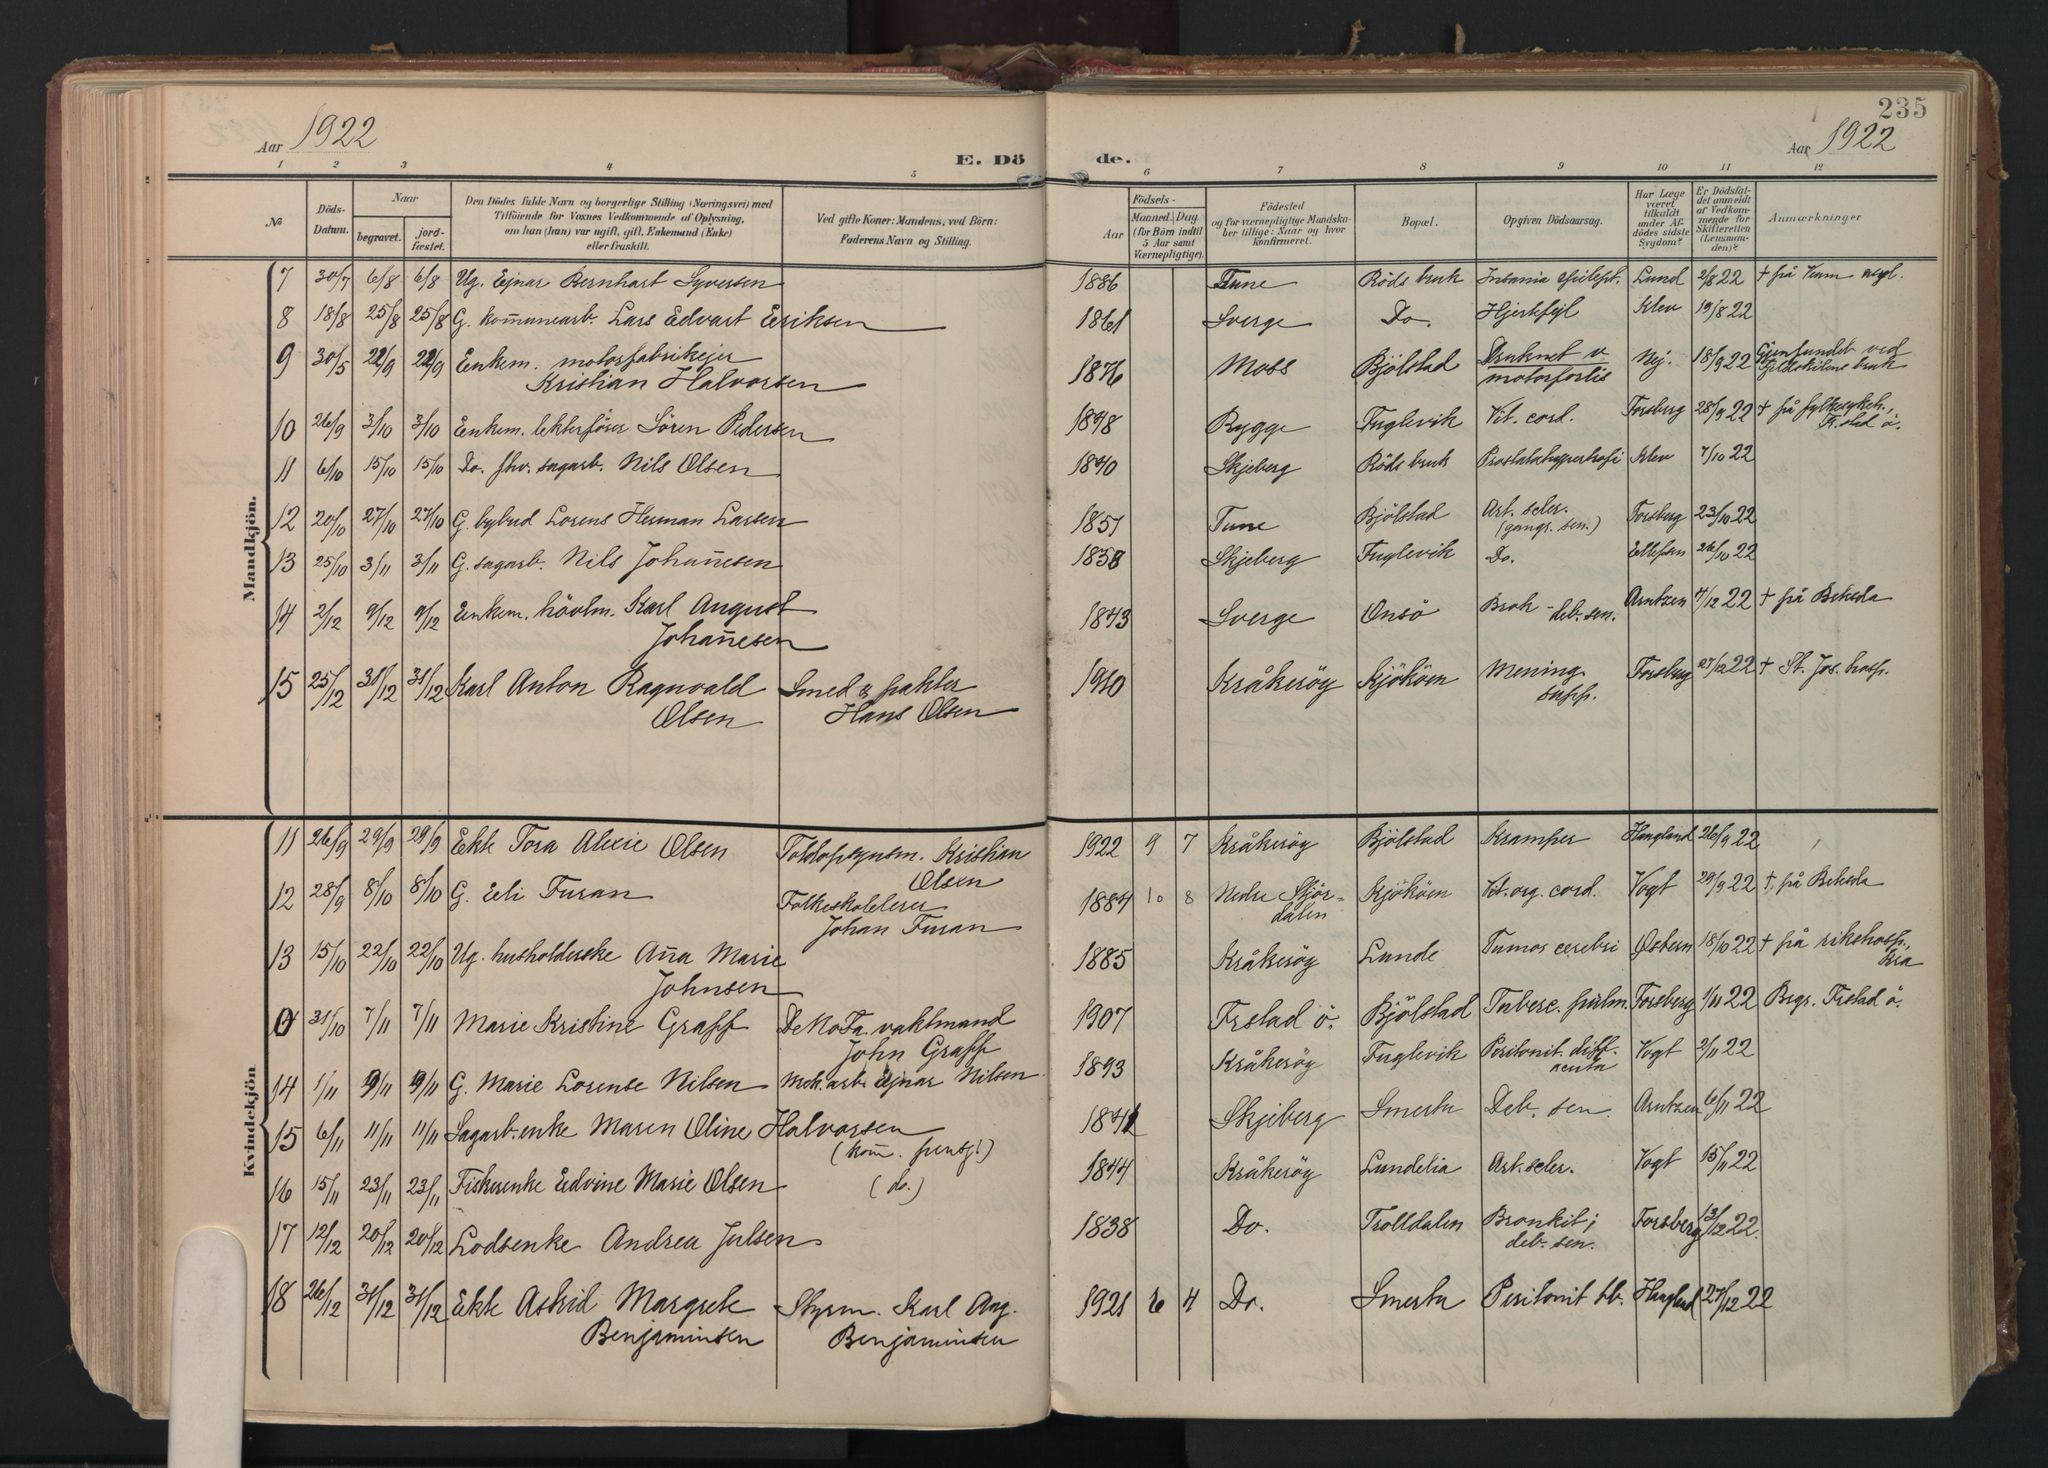 235
Aar 1922
E. Dö
de.
Aar 1922
1 2 3 4 5 6 7 8 9 10 11 12
№
Döds-Datum.
Naar
begravet.
jord-fæstet.
Den Dödes fulde Navn og borgerlige Stilling (Næringsvei) med
Tilföiende for Voxnes Vedkommende af Oplysning,
om han (hun) var ugift, gift, Enkemand (Enke)
eller fraskilt.
Ved gifte Koner: Mandens, ved Börn:
Faderens Navn og Stilling.
Födsels-
Aar
Maaned. Dag
(for Börn indtil
5 Aar samt
Værnepligtige).
Födested
og for værnepligtige Mandska-
ber tillige: Naar og hvor
konfirmeret.
Bopæl.
Opgiven Dödsaarsag.
Har Læge
været
tilkaldt
under Af-
dödes sidste
Sygdom?
Er Dödsfal-
det anmeldt
af Vedkom-
mende for
Skifteretten
(Lensman-
den)?
Anmærkninger
Mandkjön.
7 30/7 6/8 6/8 Ug. Ejnar Bernhart Syversen 1886 Tune Röds bruk Insania epilept. Lund 2/8 22 † på
8 18/8 25/8 25/8 G. kom̄unearb. Lars Edvart Eriksen 1861 Sverge Do. Hjertefejl Klev 19/8 22
9 30/5 22/9 22/9 Enkem. motorfabrikejer
Kristian Halvorsen 1876 Moss Bjölstad Druknet v
motorforlis Nej. 18/9 22 Gjenfundet ved
bruk
10 26/9 3/10 3/10 Enkem. lekterförer Sören Pedersen 1848 Rygge Fuglevik Vit. cord. Forsberg 28/9 22 † på fylkesykeh.,
F.stad ö.
11 6/10 15/10 15/10 Do. fhv. sagarb. Nils Olsen 1840 Skjeberg Röds bruk Prostatahypertrofi Klev 7/10 22
12 20/10 27/10 27/10 G. bybud Lorens Herman Larsen 1851 Tune Bjölstad Art. scler.
(gangr. sen.) Forsberg 23/10 22
13 25/10 3/11 3/11 G. sagarb. Nils Johan̄esen 1838 Skjeberg Fuglevik Do. Ellefsen 26/10 22
14 2/12 9/12 9/12 Enkem. hövlm. Karl August
Johan̄esen 1843 Sverge Onsö Brok - deb. sen. Arntzen 4/12 22 † på Betesda
15 25/12 31/12 31/12 Karl Anton Ragnvald
Olsen Smed & pakter
Hans Olsen 1910 Kråkeröy Kjököen Mening.
supp. Forsberg 27/12 22 † St. Jos. hosp.
Kvindekjön
11 26/9 29/9 29/9 Ekte Tora Alexie Olsen Toldopsynsm. Kristian
Olsen 1922 9 7 Kråkeröy Bjölstad Kramper Haugland 26/9 22
12 28/9 8/10 8/10 G. Eli Furan Folkeskolelærer
Johan Furan 1884 10 8 Nedre Stjör-
dalen Kjököen Vit. org. cord. Vogt 29/9 22 † på Betesda
13 15/10 22/10 22/10 Ug. husholderske An̄a Marie
Johnsen 1885 Kråkeröy Lunde Tumor cerebri Østern 18/10 22 † på rikshosp.,
Kra
0 31/10 7/11 7/11 Marie Kristine Graff DeNoFa vaktmand
John Graff 1907 Frstad ö. Bjölstad Tuberc. pulm. Forsberg 1/11 22 Begr. Frstad ö.
14 1/11 9/11 9/11 G. Marie Lorense Nilsen Mek. arb. Ejnar Nilsen 1893 Kråkeröy Fuglevik Peritonit. diff.
acuta Vogt 2/11 22
15 6/11 11/11 11/11 Sagarb.enke Maren Oline Halvorsen
(kom̄. ) Skjeberg Smerta Deb. sen. Arntzen 6/11 22
16 15/11 23/11 23/11 Fiskerenke Edvine Marie Olsen (do.) 1844 Kråkeröy Lundelia Art. scler. Vogt 15/11 22
17 12/12 20/12 20/12 Lodsenke Andrea Julsen 1838 Do. Trolldalen Bronkit;
deb. sen. Forsberg 13/12 22
18 26/12 31/12 31/12 Ekte Astrid Margrete
Benjaminsen Styrm. Karl Aug.
Benjaminsen 1921 6 4 Do. Smerta Peritonit tb. Haugland 27/12 22